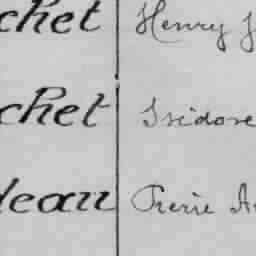 chet Henry J
chet Isidore
leau Pierre A